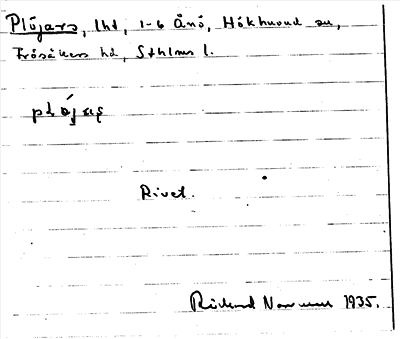 Plöjars, lht, 1-6 Ånö, Hökhuvud sn,
Frösåkers hd, Sthlms l.
plöjaș
Rivet.
Rickard 1935.